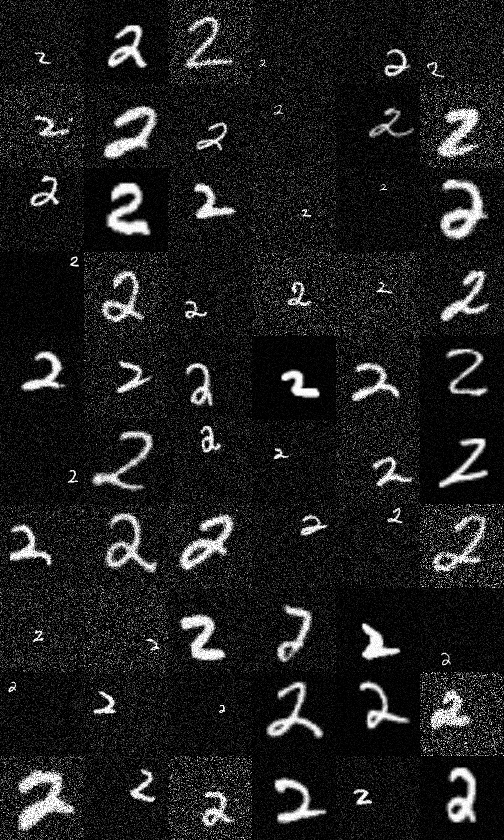 2 2 2 2 2 2
2 2 2 2 2 2
2 2 2 2 2 2
2 2 2 2 2 2
2 2 2 2 2 2
2 2 2 2 2 2
2 2 2 2 2 2
2 2 2 2 2 2
2 2 2 2 2 2
2 2 2 2 2 2